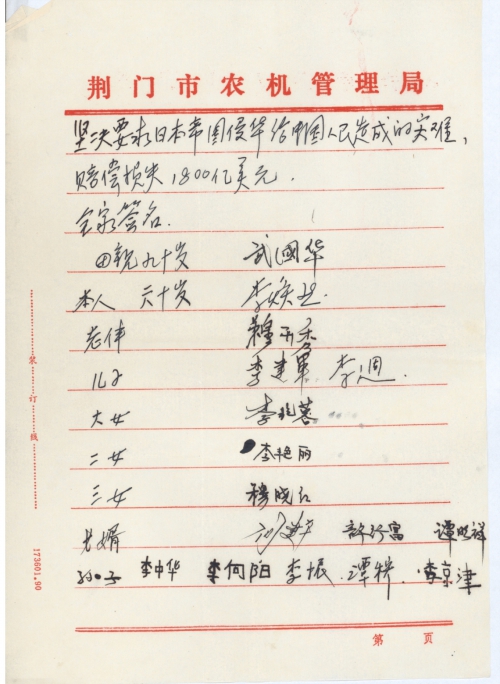 荆门市农机管理局
坚决要求日本帝国侵华给中国人民造成的灾难,
赔偿损失1800亿美元.
全家签名.
母亲九十岁 武國华
本人 六十岁 李焕
老伴 穆
儿子 李建军 李週.
大女 李兆蓉
二女 李艳丽
三女 穆晓红
长婿 谭明祥
孙子 李中华 李向阳 李振 谭轶 李京津
装订线
173601.90
第 页